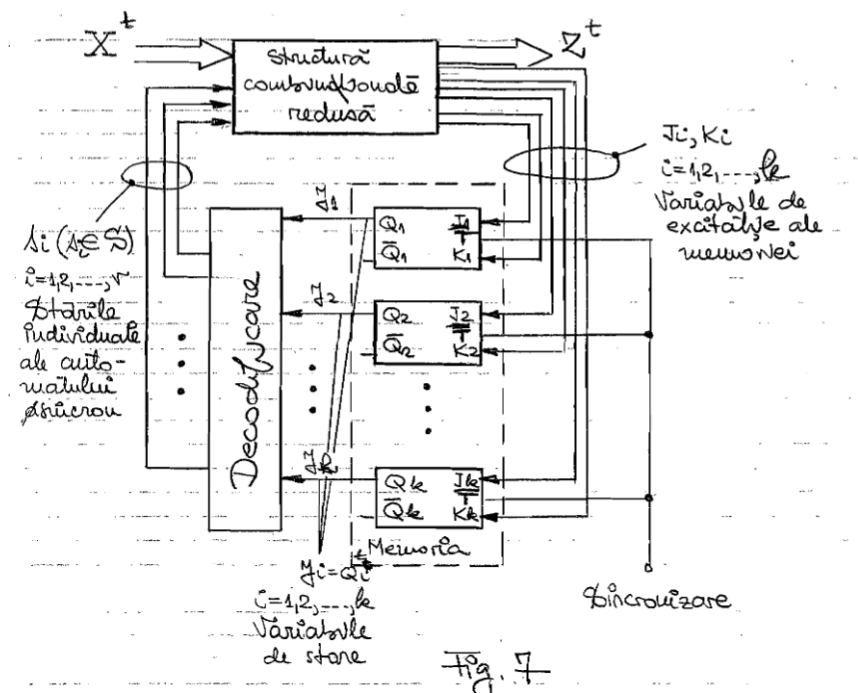 X^t
Z^t
Structură
combinaţională
redusă
Ji, Ki
i=1,2,...,k
Variabile de
excitaţie ale
memoriei
si (si∈S)
i=1,2,...,r
Stările
individuale
ale auto-
matului
sincron
Decodificare
y1
Q1 J1
T
Q̅1 K1
y2
Q2 J2
T
Q̅2 K2
yk
Qk Jk
T
Q̅k Kk
Memoria
yi=Qi^t
i=1,2,...,k
Variabile
de stare
Sincronizare
Fig. 7